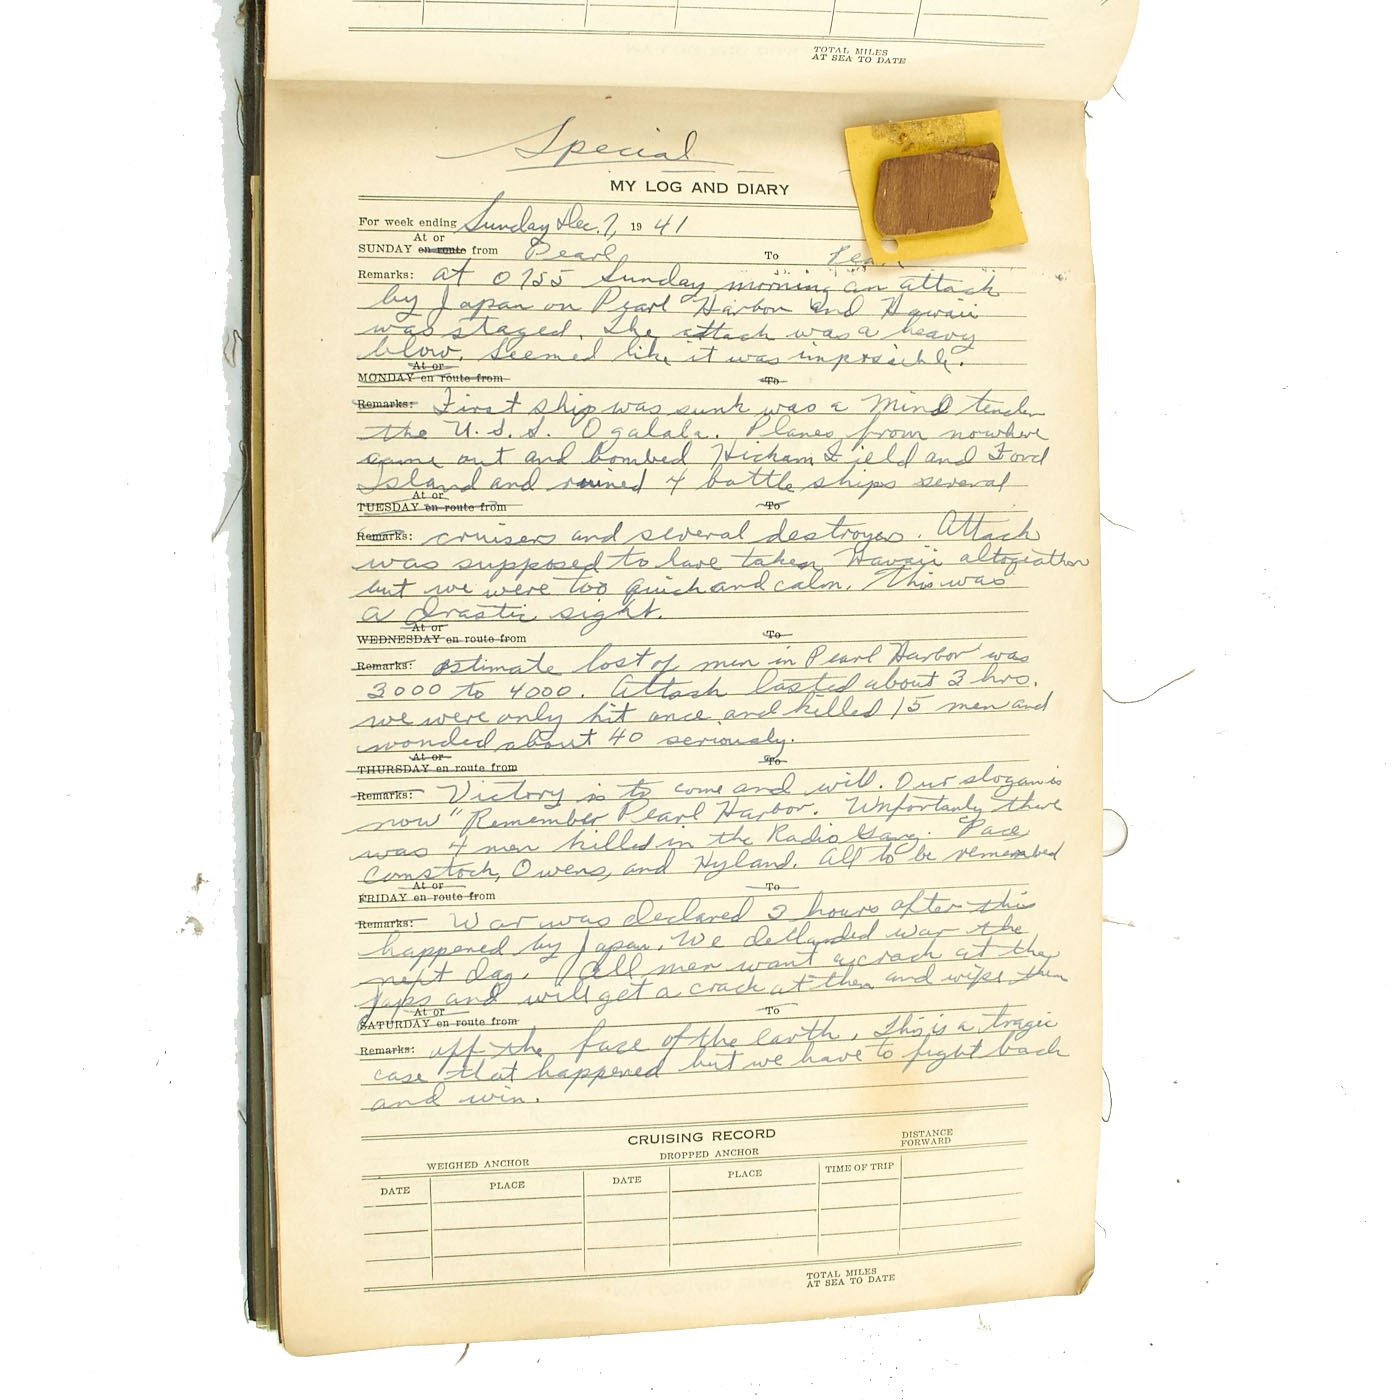 TOTAL MILES
AT SEA TO DATE
Special
MY LOG AND DIARY
For week ending Sunday Dec. 7, 19 41
At or
SUNDAY en route from Pearl To Pearl
Remarks: At 0755 Sunday morning an attack
by Japan on Pearl Harbor and Hawaii
was staged. The attack was a heavy
blow. Seemed like it was impossible.
At or
MONDAY en route from To
Remarks: First ship was sunk was a Mind tender
the U.S.S. Ogalala. Planes from nowhere
came out and bombed Hickam Field and Ford
Island and ruined 4 battle ships several
At or
TUESDAY en route from To
Remarks: cruisers and several destroyers. Attack
was supposed to have taken Hawaii
but we were too quick and calm. This was
a drastic sight.
At or
WEDNESDAY en route from To
Remarks: estimate lost of men in Pearl Harbor was
3000 to 4000. Attack lasted about 3 hrs.
we were only hit once and killed 15 men and
wonded about 40 seriously.
At or
THURSDAY en route from To
Remarks: Victory is to come and will. Our slogan is
now "Remember Pearl Harbor. Unfortanly there
was 4 men killed in the Radio Gang. Pace
Comstock, Owens, and Hyland. All to be remembed
At or
FRIDAY en route from To
Remarks: War was declared 2 hours after this
happened by Japan. We war the
next day. All men want a crack at the
Japs and will get a crack at them and wipe them
At or
SATURDAY en route from To
Remarks: off the face of the earth. This is a tragic
case that happened but we have to fight back
and win.
CRUISING RECORD
WEIGHED ANCHOR DROPPED ANCHOR DISTANCE FORWARD
DATE PLACE DATE PLACE TIME OF TRIP
TOTAL MILES
AT SEA TO DATE